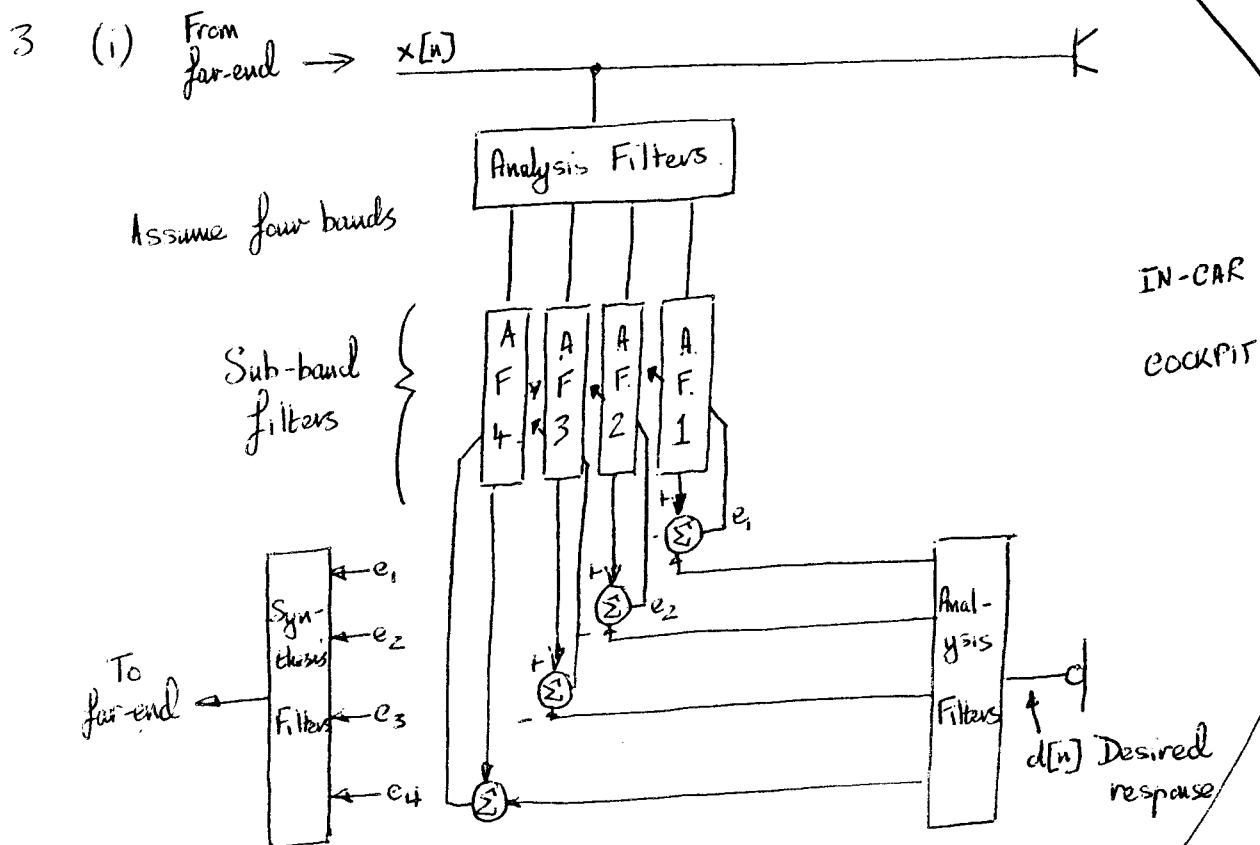 3 (i) From
far-end → x[n]
Analysis Filters
Assume four bands
IN-CAR
COCKPIT
Sub-band
filters
A F 4
A F 3
A F. 2
A. F. 1
+
-
Σ
e₁
+
-
Σ
e₂
+
-
Σ
Σ
Syn-
thesis
Filters
e₁
e₂
e₃
e₄
To
far-end
Anal-
ysis
Filters
d[n] Desired
response